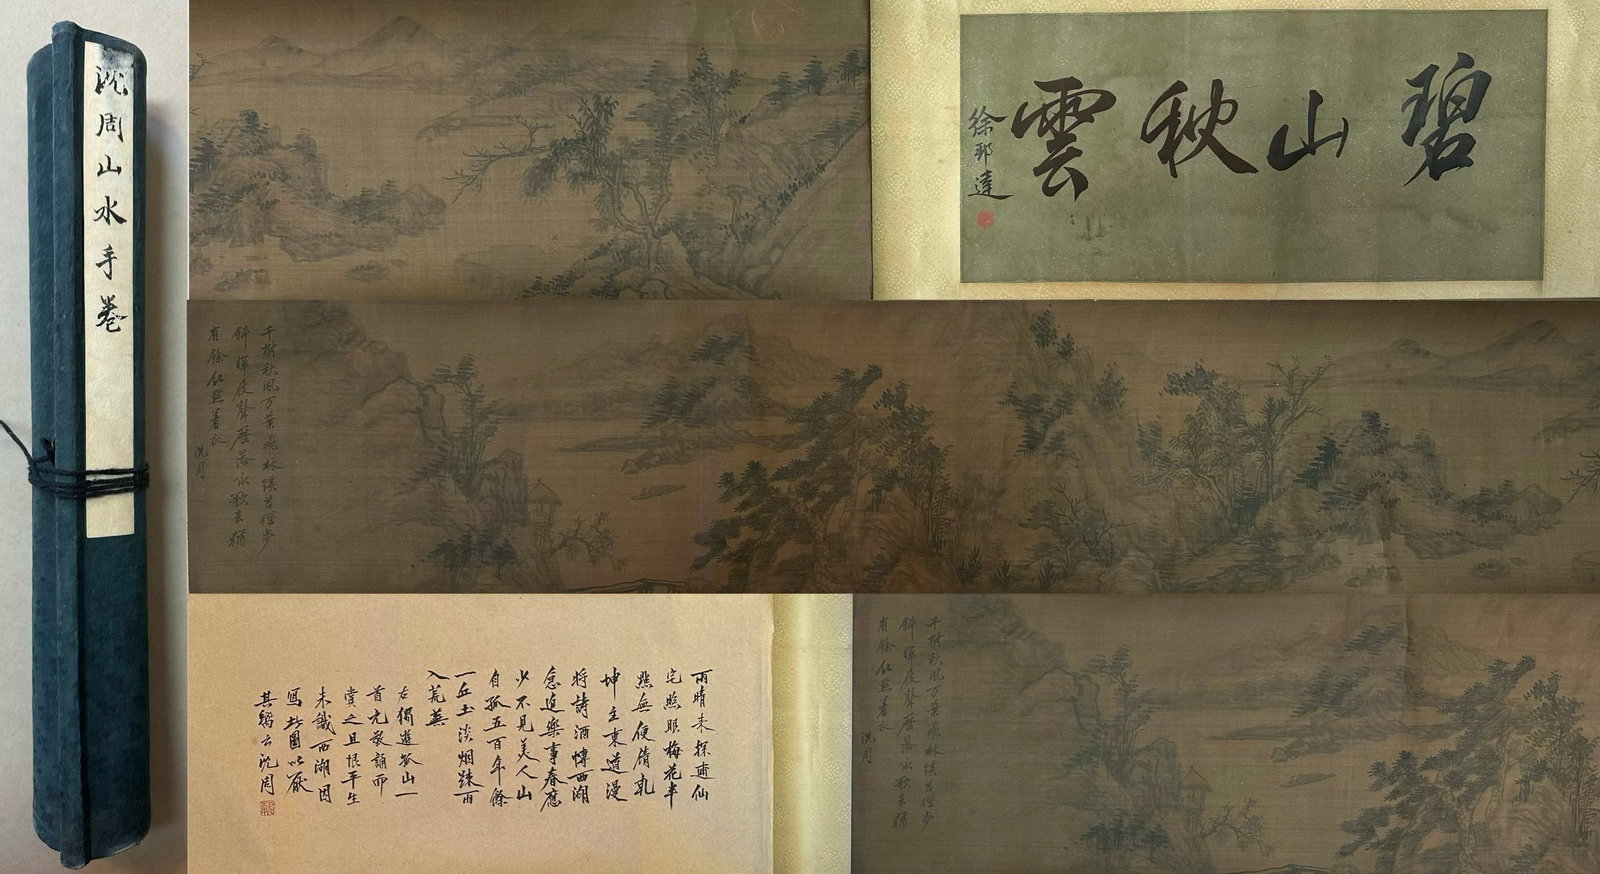 沈周山水手卷
碧山秋雲
徐邦達
千樹秋風万葉飛林蹊苔徑步
斜暉屐聲歷落咏歌去猶
有餘紅點着衣
沈周
雨晴來探逋仙
宅照眼梅花半
點無便倩乾
坤主東道漫
將詩酒博西湖
念追樂事春應
少不見美人山
自孤五百年餘
一丘土淡烟踈雨
入荒蕪
左獨遊孤山一
首尤發誦而
賞之且恨平生
未識西湖因
寫此圖以厭
其驕云沈周
千樹秋風万葉飛林蹊苔徑步
斜暉屐聲歷落咏歌去猶
有餘紅點着衣
沈周